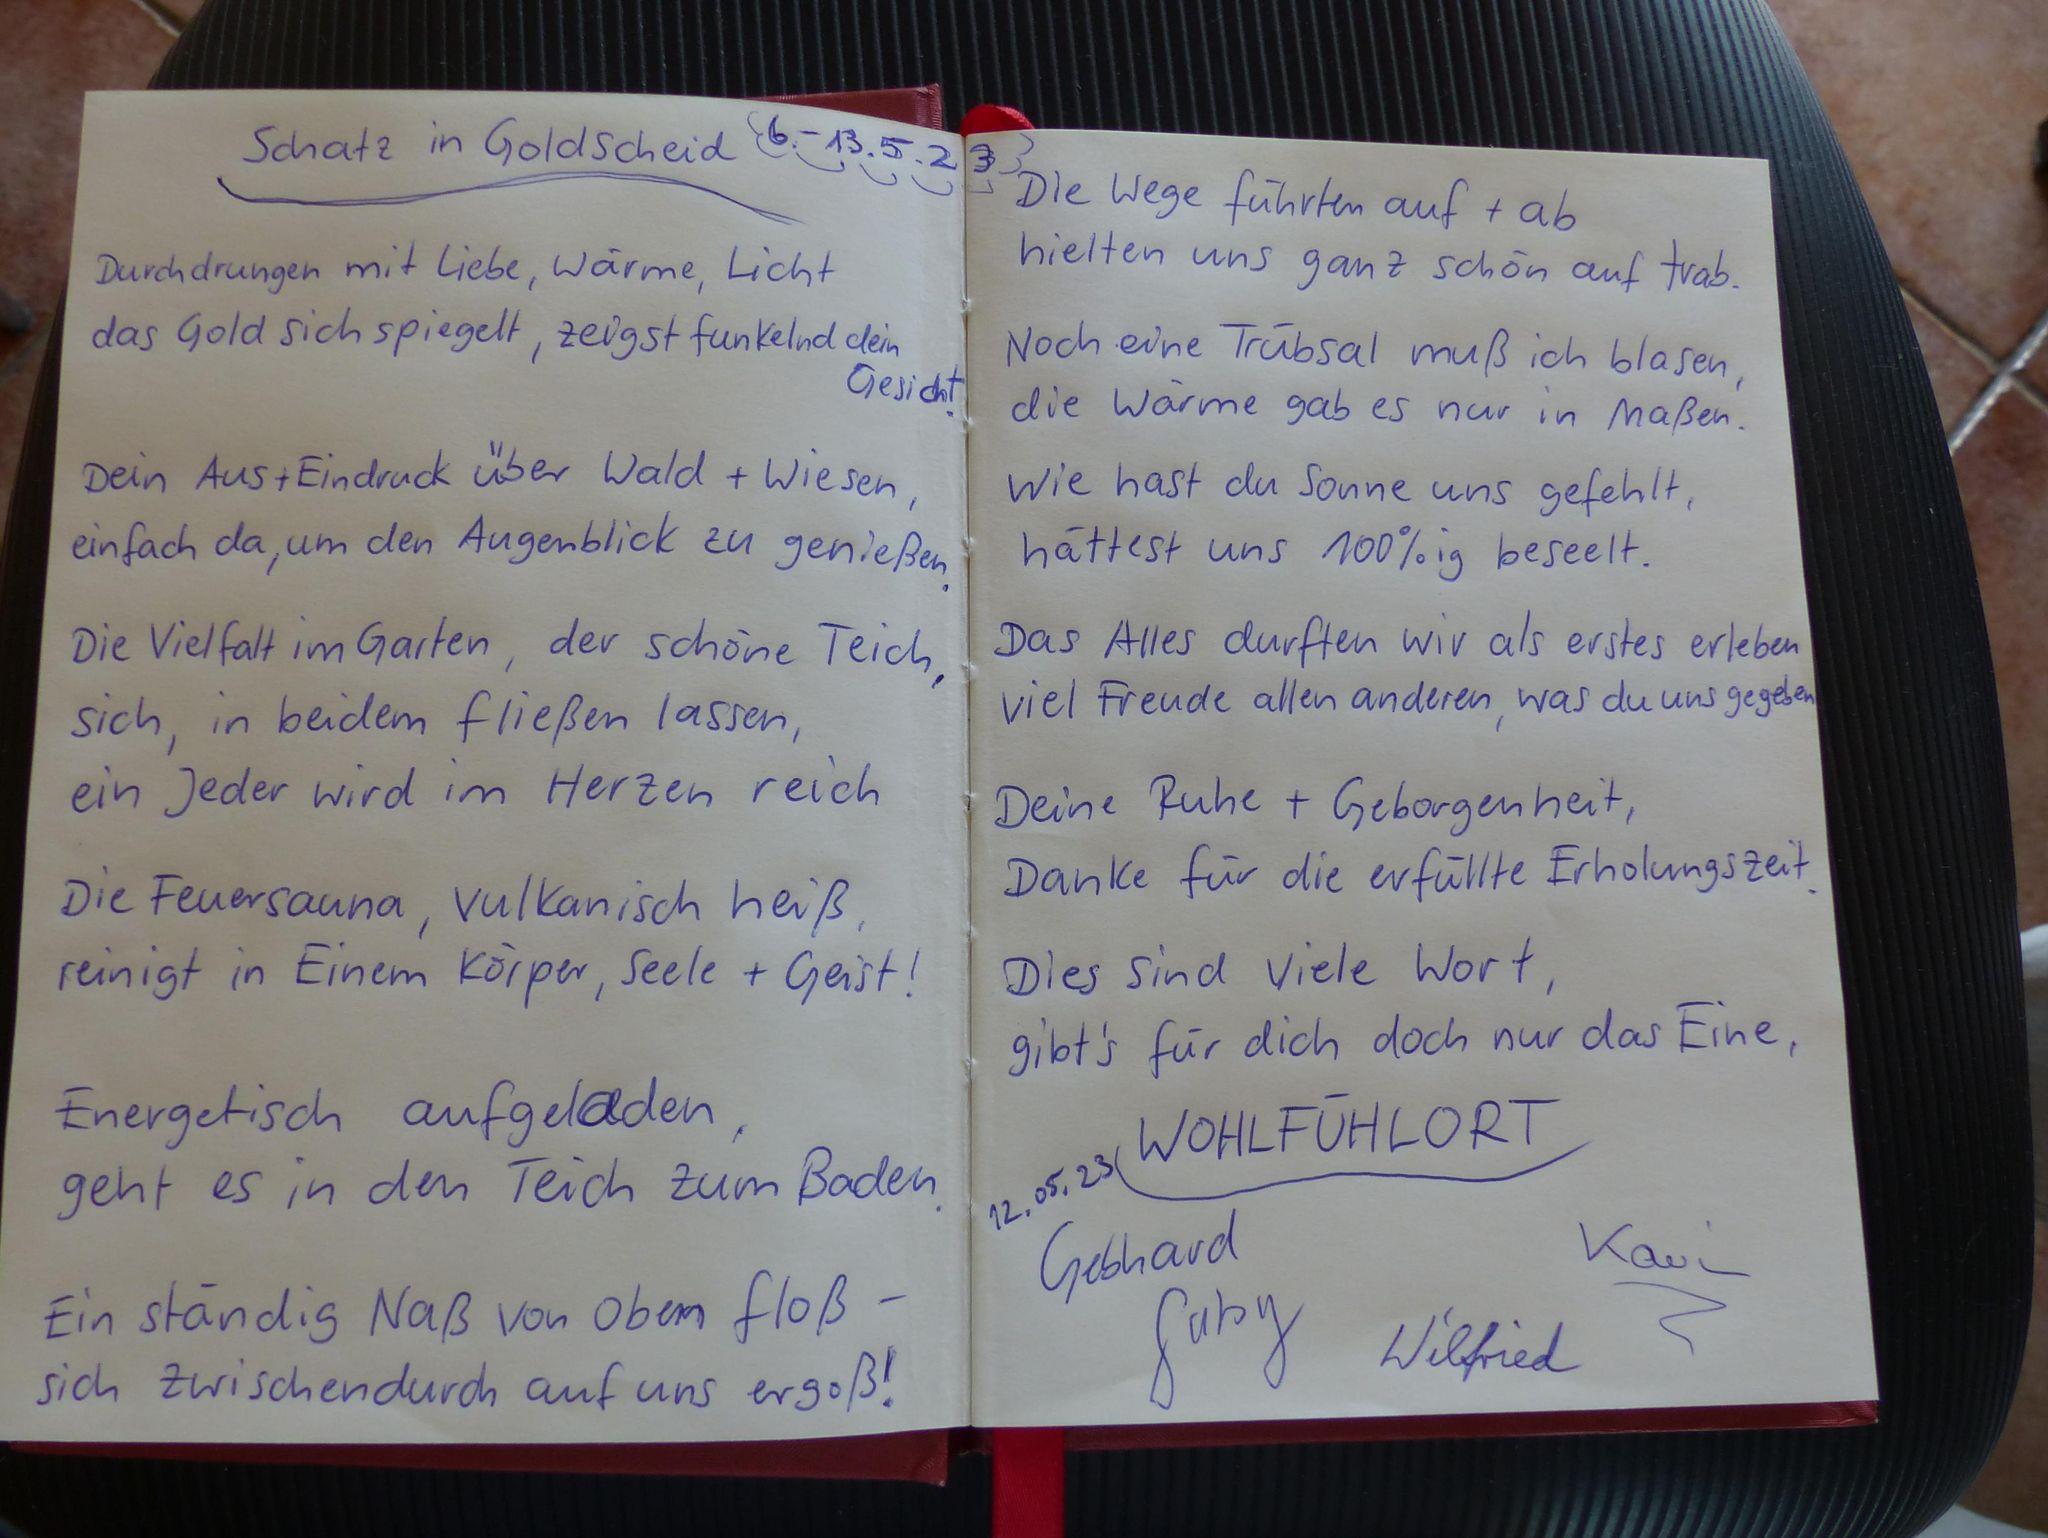 Schatz in Goldscheid (6.-13.5.23)
Durchdrungen mit Liebe, Wärme, Licht
das Gold sich spiegelt, zeigst funkelnd dein
Gesicht!
Dein Aus+Eindruck über Wald + Wiesen,
einfach da, um den Augenblick zu genießen.
Die Vielfalt im Garten, der schöne Teich,
sich, in beidem fließen lassen,
ein Jeder wird im Herzen reich
Die Feuersauna, vulkanisch heiß,
reinigt in Einem Körper, Seele + Geist!
Energetisch aufgeladen,
geht es in den Teich zum Baden.
Ein ständig Naß von Oben floß -
sich zwischendurch auf uns ergoß!
Die Wege führten auf + ab
hielten uns ganz schön auf trab.
Noch eine Trübsal muß ich blasen,
die Wärme gab es nur in Maßen.
Wie hast du Sonne uns gefehlt,
hättest uns 100%ig beseelt.
Das Alles durften wir als erstes erleben
viel Freude allen anderen, was du uns gegeben
Deine Ruhe + Geborgenheit,
Danke für die erfüllte Erholungszeit.
Dies sind viele Wort,
gibt's für dich doch nur das Eine,
WOHLFÜHLORT
12.05.23
Gebhard
Gaby
Wilfried